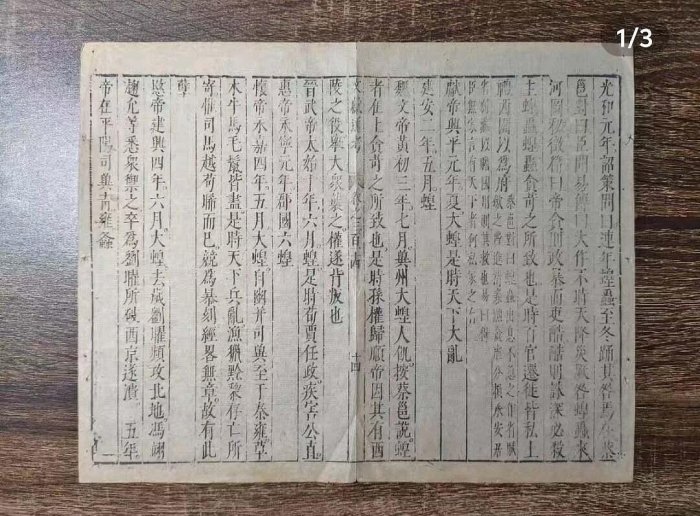 1/3
光和元年詔策問曰連年蝗蟲至冬踊其咎焉在蔡
邕對曰臣聞易傳曰大作不時天降災厥咎蝗蟲來
河圖秘徵篇曰帝貪則政暴而吏酷酷則誅深必殺
主蝗蟲蝗蟲貪苛之所致也是時百官遷徙皆私上
禮西園以為府
獻帝興平元年夏大蝗是時天下大亂
建安二年五月蝗
魏文帝黃初三年七月冀州大蝗人飢按蔡邕說蝗
者在上貪苛之所致也是時孫權歸順帝因其有西
陵之役舉大眾襲之權遂背叛也
文獻通考 卷三百十四 十四
晉武帝太始十年六月蝗是時荀賈任政疾害公直
惠帝永寧元年郡國六蝗
懷帝永嘉四年五月大蝗自幽并司冀至于秦雍草
木牛馬毛鬣皆盡是時天下兵亂漁獵黔黎存亡所
寄惟司馬越苟晞而已競為暴刻經略無章故有此
孽
愍帝建興四年六月大蝗去歲劉曜頻攻北地馮翊
趙允等悉眾禦之卒為劉曜所破西京遂潰 五年
帝在平陽司冀青雍螽